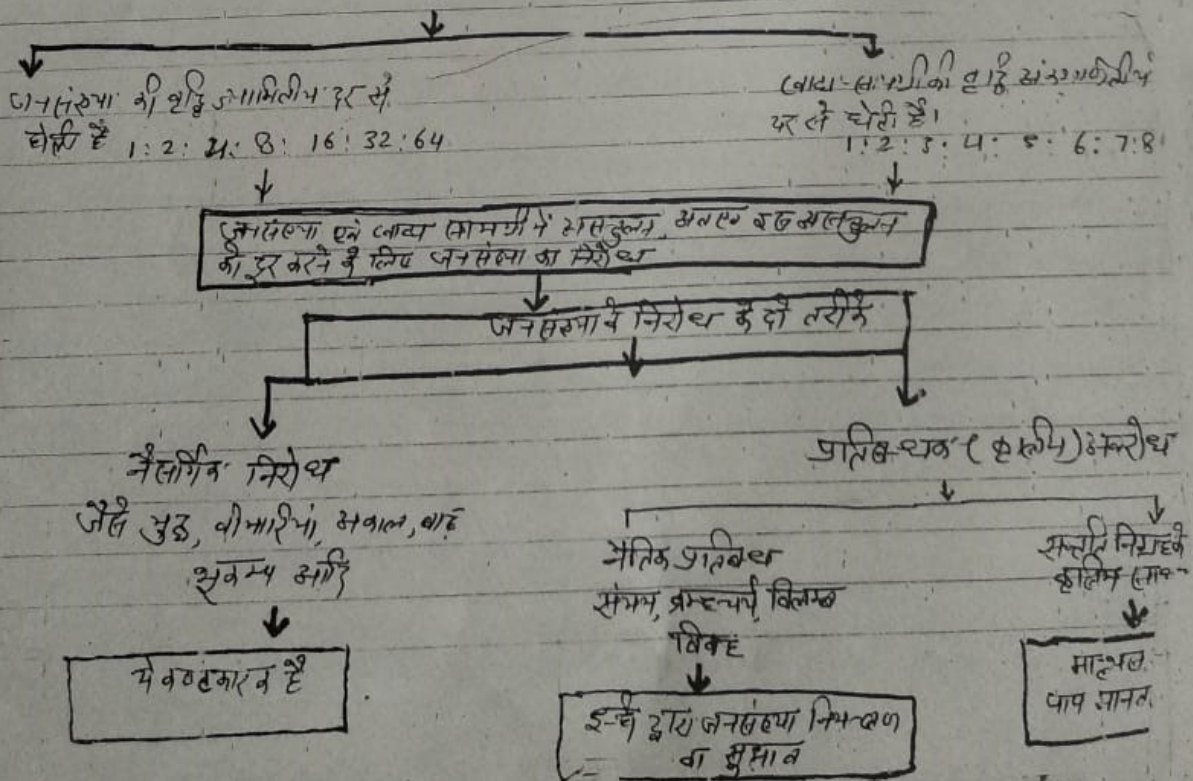 जनसंख्या की वृद्धि ज्यामितीय दर से
होती है 1:2:4:8:16:32:64
खाद्य-सामग्री की वृद्धि अंकगणितीय
दर से होती है।
1:2:3:4:5:6:7:8
जनसंख्या एवं खाद्य सामग्री में असन्तुलन, अतएव इस असन्तुलन
को दूर करने के लिए जनसंख्या का निरोध
जनसंख्या के निरोध के दो तरीके
नैसर्गिक निरोध
जैसे युद्ध, बीमारियां, अकाल, बाढ़
भूकम्प आदि
ये कष्टकारक है
प्रतिबन्धक (कृत्रिम) अवरोध
नैतिक प्रतिबंध
संयम, ब्रम्हचर्य, विलम्ब
विवाह
इन्हें द्वारा जनसंख्या नियन्त्रण
का सुझाव
सन्तति निग्रह के
कृत्रिम साध
माल्थस
पाप मानत